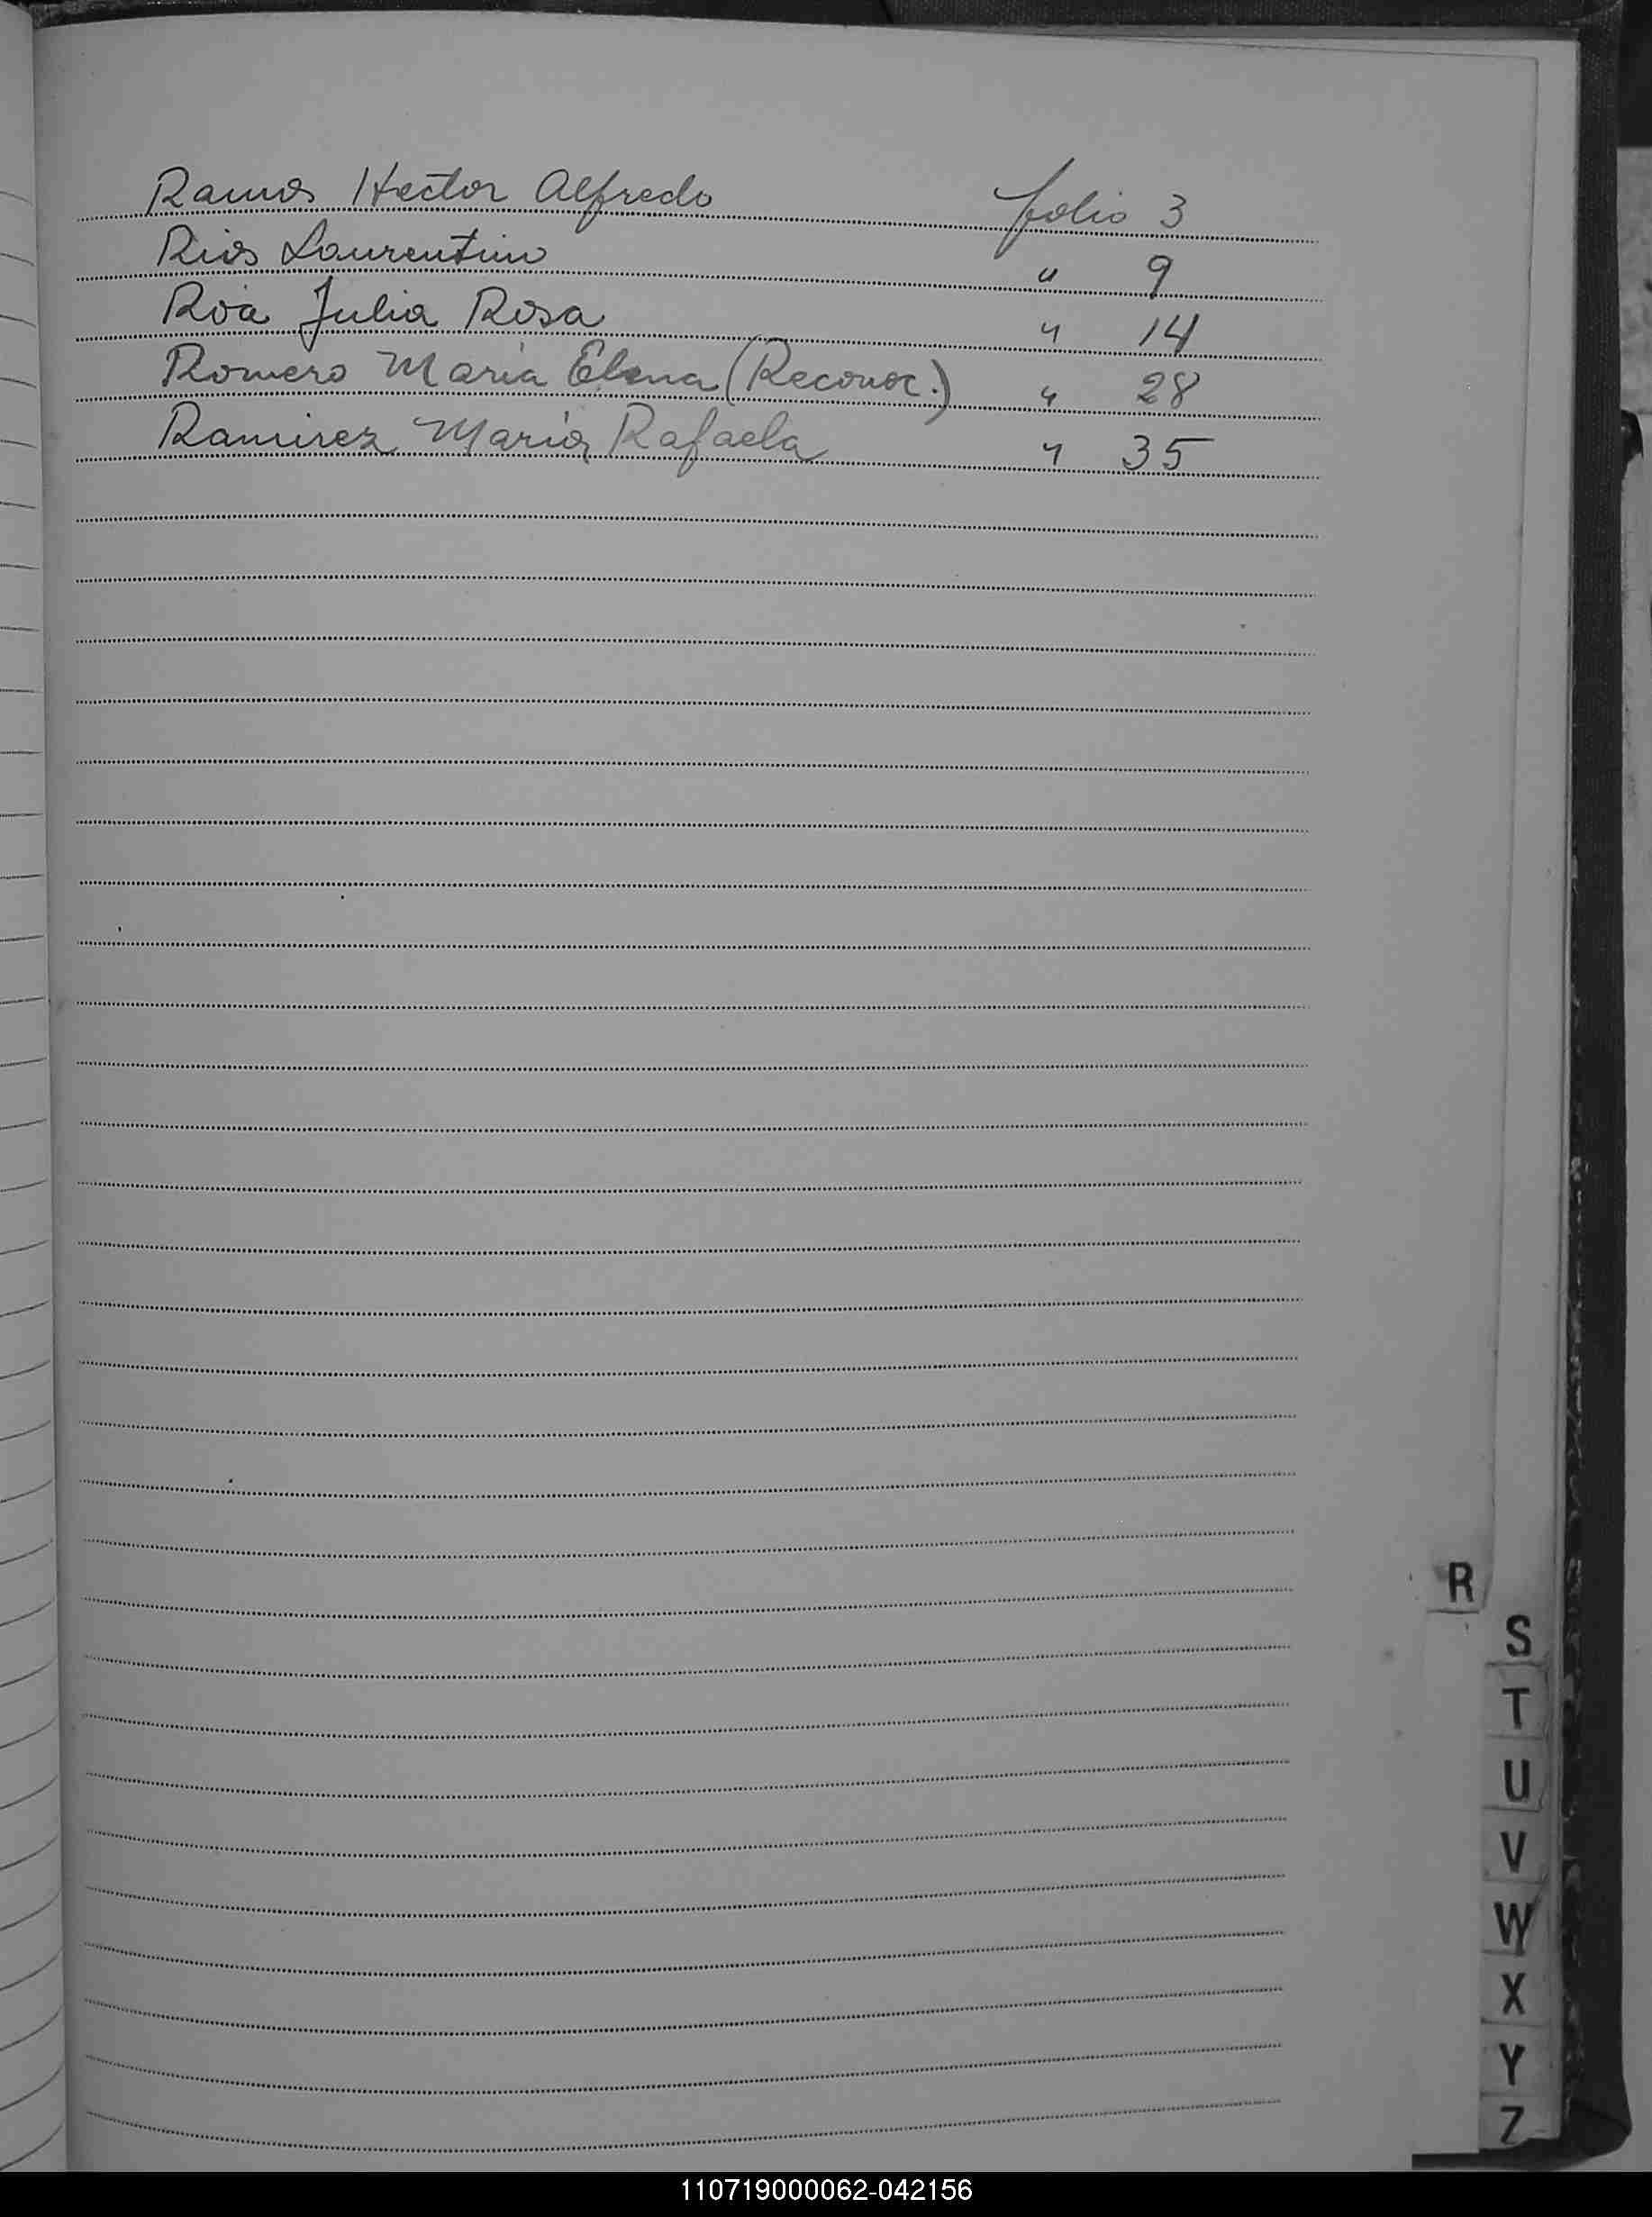 Ramos Hector Alfredo folio 3
Rios Laurentino " 9
Roa Julia Rosa " 14
Romero Maria Elena (Reconoc.) " 28
Ramirez Maria Rafaela " 35
R
S
T
U
V
W
X
Y
Z
110719000062-042156